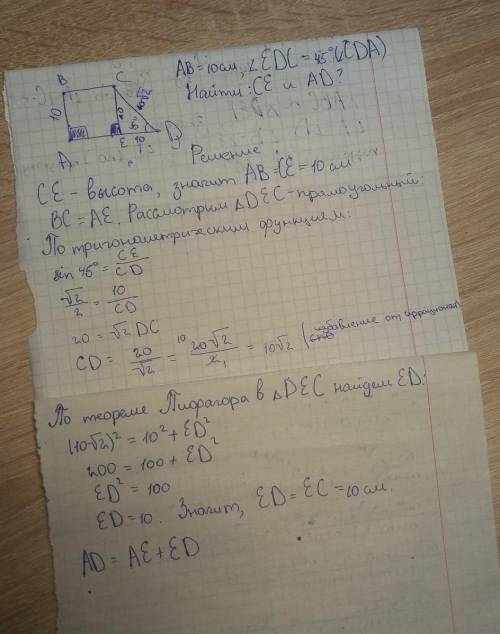 AB = 10 см, ∠EDC = 45° (∠CDA)
Найти: CE и AD?
B C
10 10 10√2
45°
A E 10 D
Решение:
CE - высота, значит AB = CE = 10 см
BC = AE. Рассмотрим △DEC - прямоугольный:
По тригонометрическим функцием:
sin 45° = CE/CD
√2/2 = 10/CD
20 = √2 DC
CD = 20/√2 = 20√2/2 = 10√2 (избавление от иррационал
По теореме Пифагора в △DEC найдем ED:
(10√2)² = 10² + ED²
200 = 100 + ED²
ED² = 100
ED = 10. Значит, ED = EC = 10 см.
AD = AE + ED